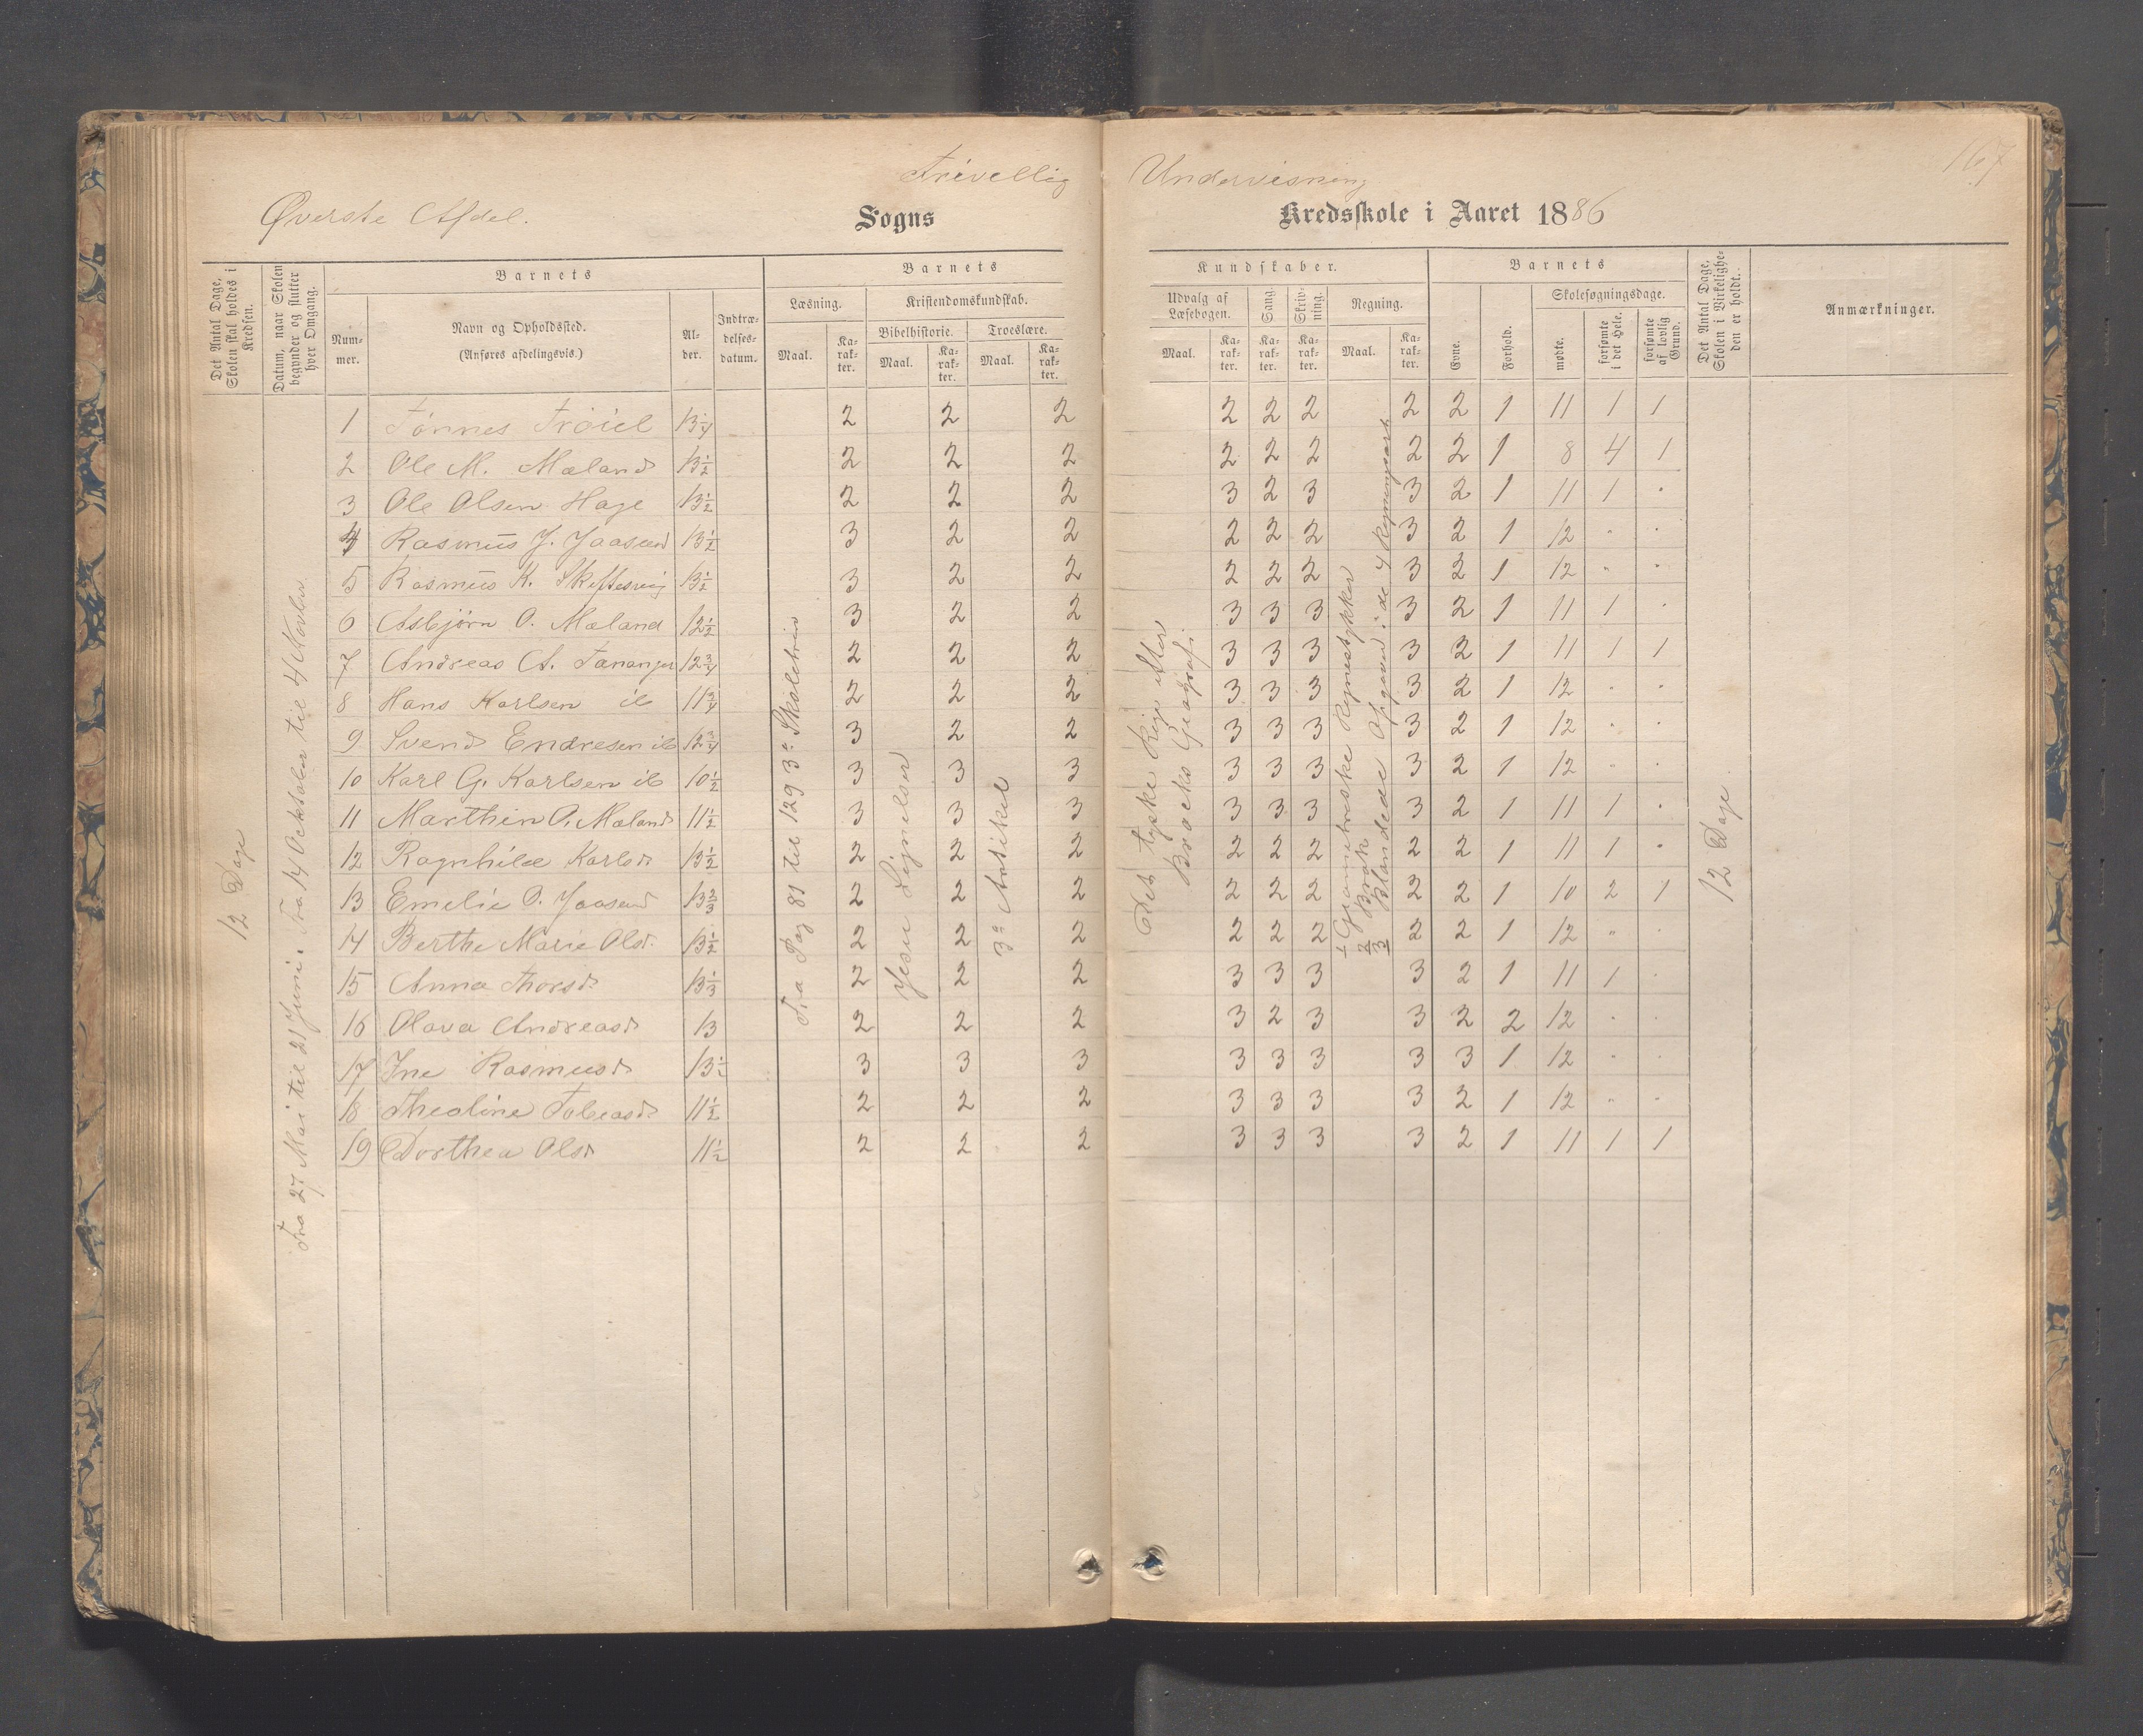 Frivellig Undervisning
167
Øverste Afdel.
Sogns
Kredsskole i Aaret 1886
Det Antal Dage, Skolen skal holdes i Kredsen.
Datum, naar Skolen begynder og slutter hver Omgang.
Barnets
Nummer.
Navn og Opholdssted.
(Anføres afdelingsvis.)
Alder.
Indtrædelsesdatum.
Barnets
Kundskaber.
Læsning.
Maal.
Karakter.
Kristendomskundskab.
Bibelhistorie.
Maal.
Karakter.
Troeslære.
Maal.
Karakter.
Udvalg af Læsebogen.
Maal.
Karakter.
Sang.
Karakter.
Skrivning.
Karakter.
Regning.
Maal.
Karakter.
Barnets
Evne.
Forhold.
Skolesøgningsdage.
mødte.
forsømte i det Hele.
forsømte af lovlig Grund.
Det Antal Dage, Skolen i Virkeligheden er holdt.
Anmærkninger.
12 Dage
Fra 27 Mai til 21 Juni. Fra 14 Ocktober til 4 Novbr
Fra Pag 81 til 129 3e Skoletrin
Jesu Lignelser
3e Artikel
Det tyske Rige efter
Bracks Geografi
1 Geometriske Regnestykker
2 Brøk
3 Blandede Opgaver i de 4 Regningsart
12 Dage
1 Tønnes Trøiel 13 1/4 2 2 2 2 2 2 2 2 1 11 1 1
2 Ole M. Mæland 13 1/2 2 2 2 2 2 2 2 2 1 8 4 1
3 Ole Olsen Hage 13 1/2 2 2 2 3 2 3 3 2 1 11 1 "
4 Rasmus J. Jaasund 13 1/2 3 2 2 2 2 2 3 2 1 12 " "
5 Rasmus K. Skiftesvig 13 1/2 3 2 2 2 2 2 3 2 1 12 " "
6 Asbjørn O. Mæland 12 1/2 3 2 2 3 3 3 3 2 1 11 1 "
7 Andreas A. Tananger 12 3/4 2 2 2 3 3 3 3 2 1 11 1 1
8 Hans Karlsen ib 11 3/4 2 2 2 3 3 3 3 2 1 12 " "
9 Svend Endresen ib 12 3/4 3 2 2 3 3 3 3 2 1 12 " "
10 Karl G. Karlsen ib 10 1/2 3 3 3 3 3 3 3 2 1 12 " "
11 Marthin O. Mæland 11 1/2 3 3 3 3 3 3 3 2 1 11 1 "
12 Ragnhild Karlsd 13 1/2 2 2 2 2 2 2 2 2 1 11 1 "
13 Emelie O. Jaasund 13 2/3 2 2 2 2 2 2 2 2 1 10 2 1
14 Berthe Marie Olsd. 13 1/2 2 2 2 2 2 2 2 2 1 12 " "
15 Anna Thorsd. 13 1/3 2 2 2 3 3 3 3 2 1 11 1 "
16 Olava Andreasd. 13 2 2 2 3 2 3 3 2 2 12 " "
17 Ine Rasmusd. 13 1/2 3 3 3 3 3 3 3 3 1 12 " "
18 Theoline Tobiasd. 11 1/2 2 2 2 3 3 3 3 2 1 12 " "
19 Dorthea Olsd 11 1/2 2 2 2 3 3 3 3 2 1 11 1 1